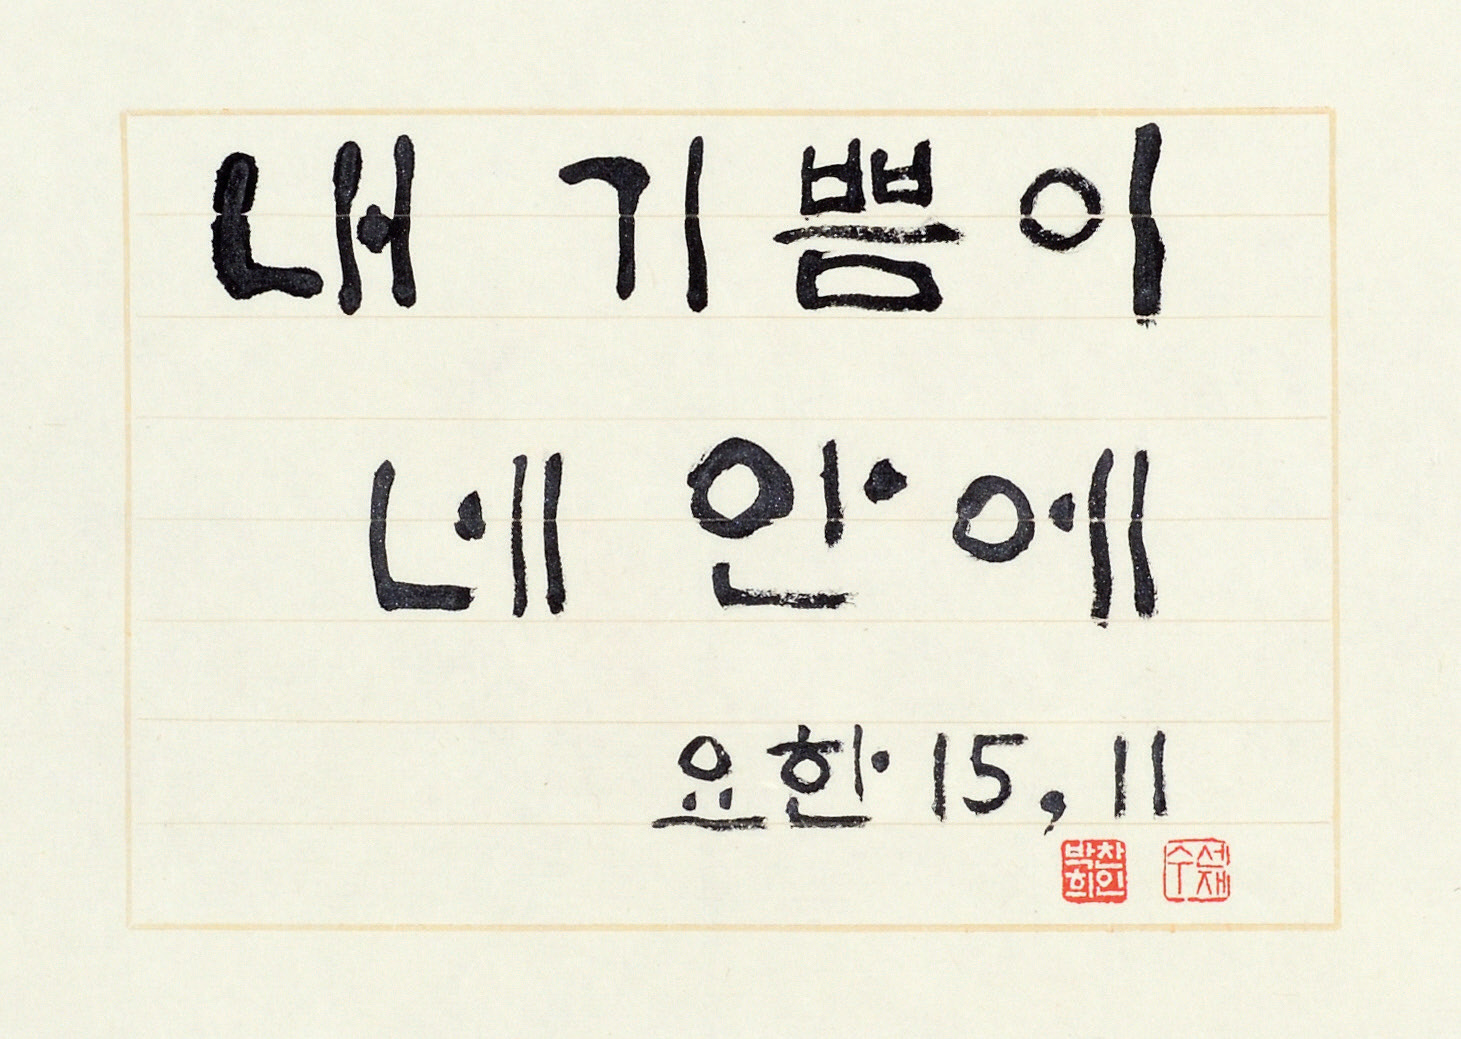 내 기쁨이
네 안에
요한 15, 11
박찬희인 수선재